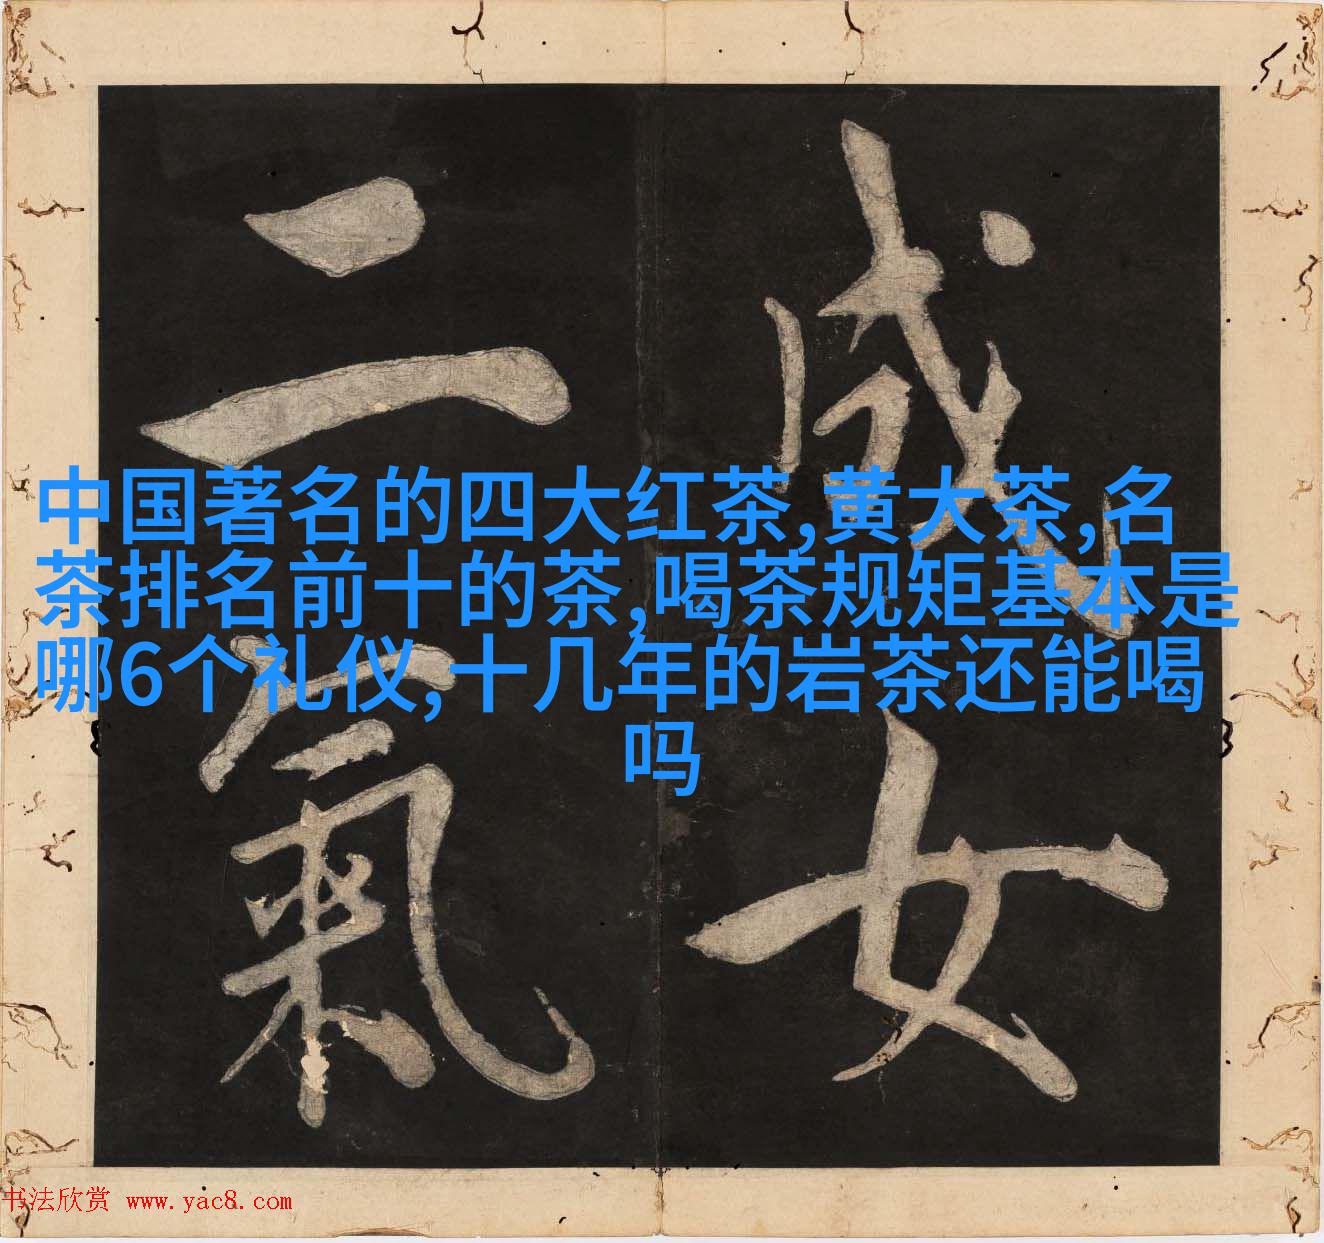 中国著名的四大红茶,黄大茶,名
茶排名前十的茶,喝茶规矩基本是
哪6个礼仪,十几年的岩茶还能喝
吗
成女
二氣
书法欣赏 www.yac8.com